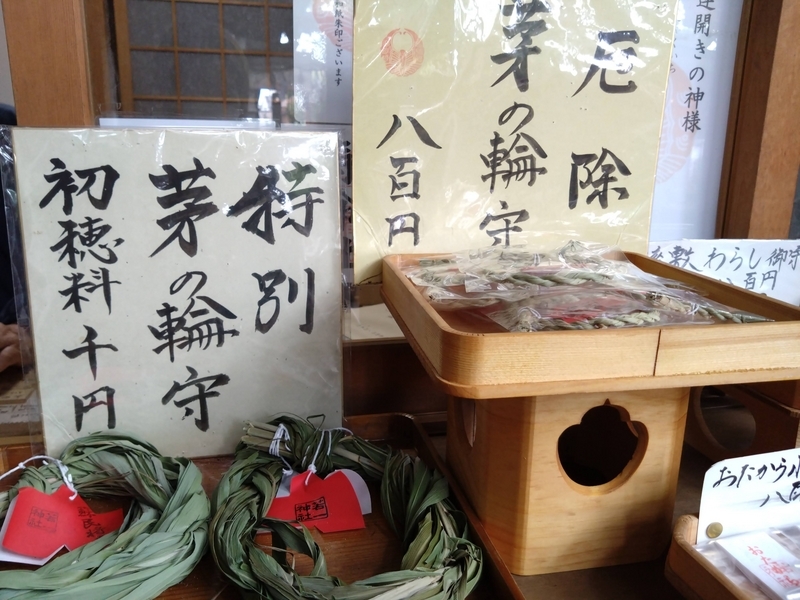 特別
茅の輪守
初穂料千円
厄除
茅の輪守
八百円
開きの神様
朱印ございます
わらじ御守
八百円
おたから
八百
若一
神社